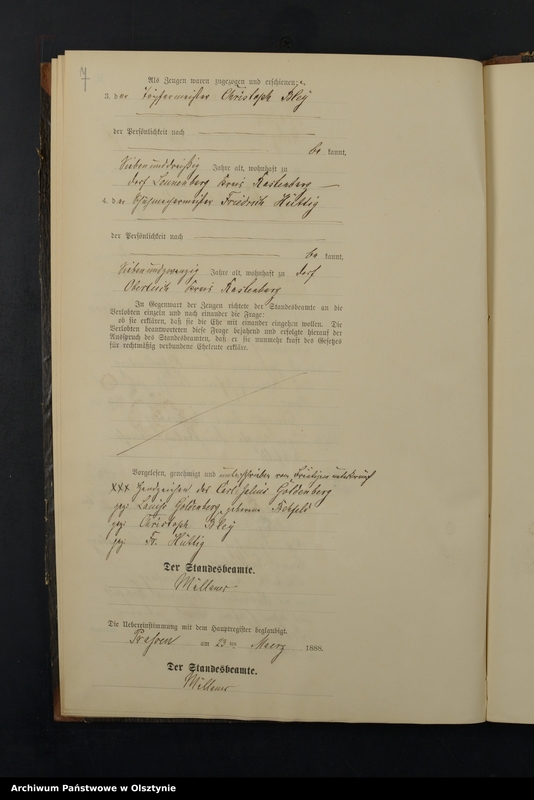 7
Als Zeugen waren zugezogen und erschienen:
3. der Töpfermeister Christoph Bley
der Persönlichkeit nach
be kannt,
Siebenunddreißig Jahre alt, wohnhaft zu
Dorf Kreis Rastenburg
4. der Schuhmachermeister Friedrich Hüttig
der Persönlichkeit nach
be kannt,
Siebenundzwanzig Jahre alt, wohnhaft zu Dorf
Kreis Rastenburg
In Gegenwart der Zeugen richtete der Standesbeamte an die
Verlobten einzeln und nach einander die Frage:
ob sie erklären, daß sie die Ehe mit einander eingehen wollen. Die
Verlobten beantworteten diese Frage bejahend und erfolgte hierauf der
Ausspruch des Standesbeamten, daß er sie nunmehr kraft des Gesetzes
für rechtmäßig verbundene Eheleute erkläre.
Vorgelesen, genehmigt und unterschrieben von
xxx Handzeichen des Carl Goldenberg
gez. Louise Goldenberg geborene
gez. Christoph Bley
gez. Fr. Hüttig
Der Standesbeamte.
Die Uebereinstimmung mit dem Hauptregister beglaubigt.
am 23 ten Maerz 1888.
Der Standesbeamte.
Archiwum Państwowe w Olsztynie